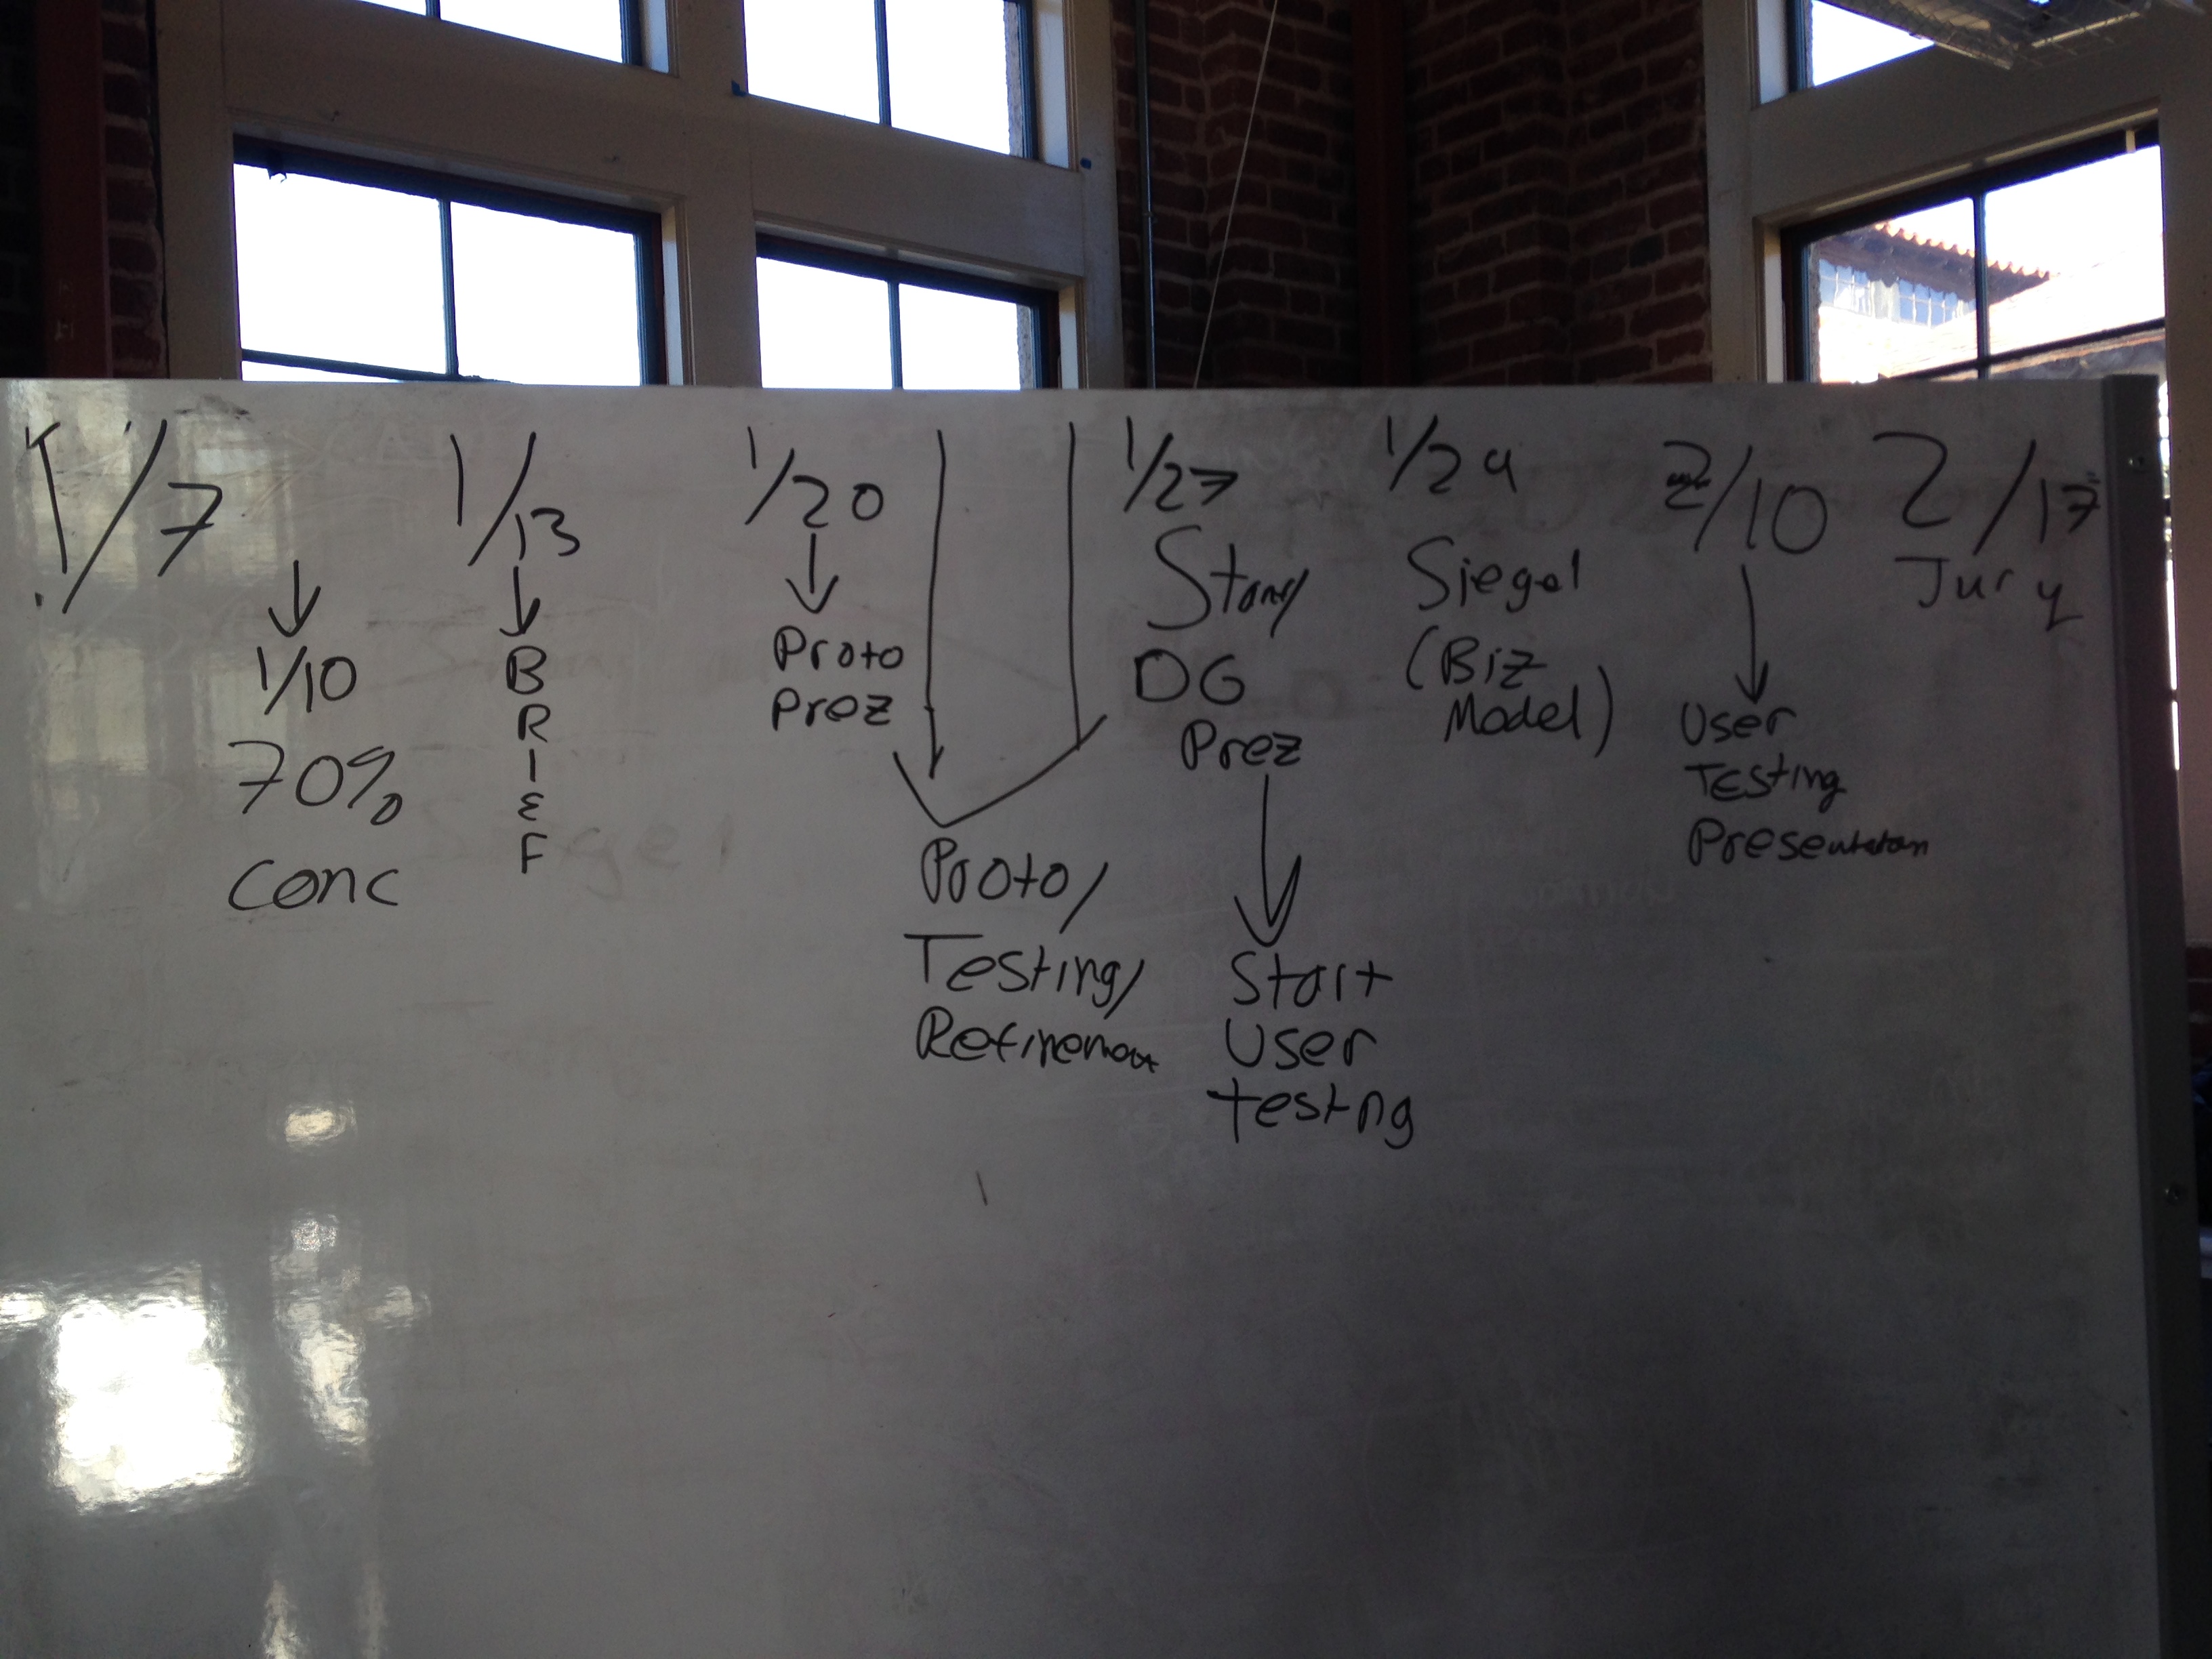 1/7
↓
1/10
70%
Conc
1/13
↓
B
R
I
E
F
1/20
↓
Proto
Prez
Proto/
Testing/
Refinement
1/27
Story/
DG
Prez
↓
Start
User
testng
1/29
Siegel
(Biz
Model)
2/10
↓
User
Testing
Presentation
2/17
Jury